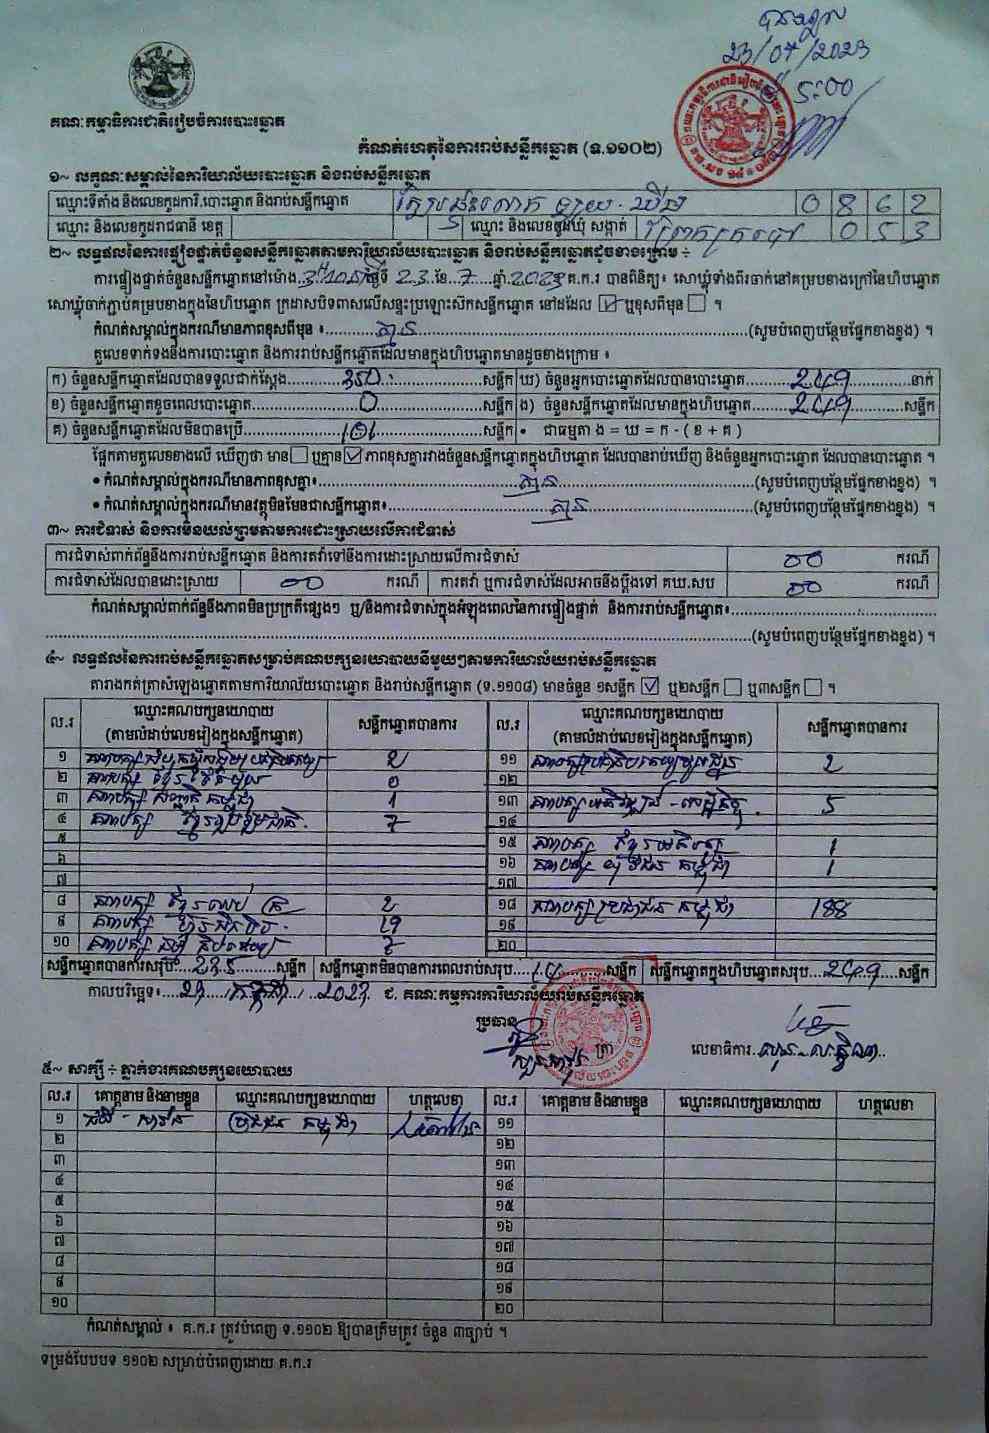 23/07/2023
គណៈកម្មាធិការជាតិរៀបចំការបោះឆ្នោត
កំណត់ហេតុនៃការរាប់សន្លឹកឆ្នោត (ទ.១១០២)
១~ លក្ខណៈសម្គាល់នៃការិយាល័យបោះឆ្នោត និងរាប់សន្លឹកឆ្នោត
ឈ្មោះទីតាំង និងលេខកូដការិ.បោះឆ្នោត និងរាប់សន្លឹកឆ្នោត 0862
ឈ្មោះ និងលេខកូដរាជធានី ខេត្ត ឈ្មោះ និងលេខកូដឃុំ សង្កាត់ 053
២~ លទ្ធផលនៃការផ្ទៀងផ្ទាត់ចំនួនសន្លឹកឆ្នោតតាមការិយាល័យបោះឆ្នោត និងរាប់សន្លឹកឆ្នោតដូចខាងក្រោម ÷
ការផ្ទៀងផ្ទាត់ចំនួនសន្លឹកឆ្នោតនៅម៉ោង ថ្ងៃទី 23 ខែ 7 ឆ្នាំ 2023 គ.ក.រ បានពិនិត្យ៖ សោឃ្លុំទាំងពីរចាក់នៅគម្របខាងក្រៅនៃហិបឆ្នោត
សោឃ្លុំចាក់ភ្ជាប់គម្របខាងក្នុងនៃហិបឆ្នោត ក្រដាសបិទពាសលើសន្ទះប្រឡោះសឹកសន្លឹកឆ្នោត នៅដដែល ☑ ឬខុសពីមុន ☐ ។
កំណត់សម្គាល់ក្នុងករណីមានភាពខុសពីមុន ៖ គ្មាន (សូមបំពេញបន្ថែមផ្នែកខាងខ្នង) ។
តួលេខទាក់ទងនឹងការបោះឆ្នោត និងការរាប់សន្លឹកឆ្នោតដែលមានក្នុងហិបឆ្នោតមានដូចខាងក្រោម ៖
ក) ចំនួនសន្លឹកឆ្នោតដែលបានទទួលជាក់ស្តែង 350 សន្លឹក ឃ) ចំនួនអ្នកបោះឆ្នោតដែលបានបោះឆ្នោត 249 នាក់
ខ) ចំនួនសន្លឹកឆ្នោតខូចពេលបោះឆ្នោត 0 សន្លឹក ង) ចំនួនសន្លឹកឆ្នោតដែលមានក្នុងហិបឆ្នោត 249 សន្លឹក
គ) ចំនួនសន្លឹកឆ្នោតដែលមិនបានប្រើ 101 សន្លឹក • ជាធម្មតា ង = ឃ = ក - ( ខ + គ )
ផ្អែកតាមតួលេខខាងលើ ឃើញថា មាន ☐ ឬគ្មាន ☑ ភាពខុសគ្នារវាងចំនួនសន្លឹកឆ្នោតក្នុងហិបឆ្នោត ដែលបានរាប់ឃើញ និងចំនួនអ្នកបោះឆ្នោត ដែលបានបោះឆ្នោត ។
• កំណត់សម្គាល់ក្នុងករណីមានភាពខុសគ្នា៖ គ្មាន (សូមបំពេញបន្ថែមផ្នែកខាងខ្នង) ។
• កំណត់សម្គាល់ក្នុងករណីមានវត្ថុមិនមែនជាសន្លឹកឆ្នោត៖ គ្មាន (សូមបំពេញបន្ថែមផ្នែកខាងខ្នង) ។
៣~ ការជំទាស់ និងការមិនយល់ព្រមតាមការដោះស្រាយលើការជំទាស់
ការជំទាស់ពាក់ព័ន្ធនឹងការរាប់សន្លឹកឆ្នោត និងការតវ៉ាទៅនឹងការដោះស្រាយលើការជំទាស់ 00 ករណី
ការជំទាស់ដែលបានដោះស្រាយ 00 ករណី ការតវ៉ា ឬការជំទាស់ដែលអាចនឹងប្តឹងទៅ គឃ.សប 00 ករណី
កំណត់សម្គាល់ពាក់ព័ន្ធនឹងភាពមិនប្រក្រតីផ្សេងៗ ឬ/និងការជំទាស់ក្នុងអំឡុងពេលនៃការផ្ទៀងផ្ទាត់ និងការរាប់សន្លឹកឆ្នោត៖
(សូមបំពេញបន្ថែមផ្នែកខាងខ្នង) ។
៤~ លទ្ធផលនៃការរាប់សន្លឹកឆ្នោតសម្រាប់គណបក្សនយោបាយនីមួយៗតាមការិយាល័យរាប់សន្លឹកឆ្នោត
តារាងកត់ត្រាសំឡេងឆ្នោតតាមការិយាល័យបោះឆ្នោត និងរាប់សន្លឹកឆ្នោត (ទ.១១០៨) មានចំនួន ១សន្លឹក ☑ ឬ២សន្លឹក ☐ ឬ៣សន្លឹក ☐ ។
ល.រ ឈ្មោះគណបក្សនយោបាយ (តាមលំដាប់លេខរៀងក្នុងសន្លឹកឆ្នោត) សន្លឹកឆ្នោតបានការ ល.រ ឈ្មោះគណបក្សនយោបាយ (តាមលំដាប់លេខរៀងក្នុងសន្លឹកឆ្នោត) សន្លឹកឆ្នោតបានការ
១ 2 ១១ 2
២ គណបក្ស ខ្មែរតែមួយ 0 ១២
៣ គណបក្ស សញ្ជាតិកម្ពុជា 1 ១៣ 5
៤ គណបក្ស ខ្មែររួបរួមជាតិ 7 ១៤
៥ ១៥ គណបក្ស ខ្មែរអភិរក្ស 1
៦ ១៦ គណបក្ស 1
៧ ១៧
៨ គណបក្ស 2 ១៨ គណបក្សប្រជាជនកម្ពុជា 188
៩ គណបក្ស ហ៊្វុនស៊ិនប៉ិច 19 ១៩
១០ គណបក្ស 7 ២០
សន្លឹកឆ្នោតបានការសរុប 235 សន្លឹក សន្លឹកឆ្នោតមិនបានការពេលរាប់សរុប 14 សន្លឹក សន្លឹកឆ្នោតក្នុងហិបឆ្នោតសរុប 249 សន្លឹក
កាលបរិច្ឆេទ៖ 23 កក្កដា 2023 ជ. គណៈកម្មការការិយាល័យរាប់សន្លឹកឆ្នោត
ប្រធាន
លេខាធិការ
៥~ សាក្សី ÷ ភ្នាក់ងារគណបក្សនយោបាយ
ល.រ គោត្តនាម និងនាមខ្លួន ឈ្មោះគណបក្សនយោបាយ ហត្ថលេខា ល.រ គោត្តនាម និងនាមខ្លួន ឈ្មោះគណបក្សនយោបាយ ហត្ថលេខា
១ ប្រជាជន កម្ពុជា ១១
២ ១២
៣ ១៣
៤ ១៤
៥ ១៥
៦ ១៦
៧ ១៧
៨ ១៨
៩ ១៩
១០ ២០
កំណត់សម្គាល់ ៖ គ.ក.រ ត្រូវបំពេញ ទ.១១០២ ឱ្យបានត្រឹមត្រូវ ចំនួន ៣ច្បាប់ ។
ទម្រង់បែបបទ ១១០២ សម្រាប់បំពេញដោយ គ.ក.រ